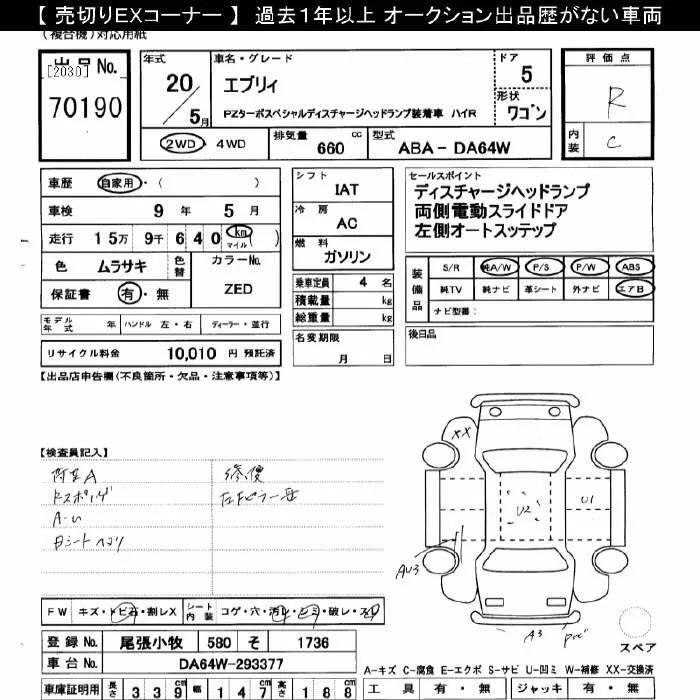 【 売切りEXコーナー 】 過去1年以上 オークション出品歴がない車両
(複合機)対応用紙
出品No.
[2030]
70190
年式
20/5月
車名・グレード
エブリィ
PZターボスペシャルディスチャージヘッドランプ装着車 ハイR
ドア
5
形状
ワゴン
評価点
R
内装
C
2WD・4WD
排気量
660 cc
型式
ABA-DA64W
車歴 自家用・( )
車検 9年 5月
走行 15万 9千 640 km マイル ( )
色 ムラサキ 色替
カラーNo.
ZED
保証書 有・無
シフト
IAT
冷房
AC
燃料
ガソリン
乗車定員 4 名
積載量 kg
総重量 kg
名変期限
月 日
セールスポイント
ディスチャージヘッドランプ
両側電動スライドドア
左側オートステップ
装備品
S/R 純A/W P/S P/W ABS
純TV 純ナビ 革シート 外ナビ エアB
ナビ型番:
後日品
モデル年式 年 ハンドル 左・右 ディーラー・並行
リサイクル料金 10,010 円 預託済
【出品店申告欄(不良箇所・欠品・注意事項等)】
【検査員記入】
修復
A-U
XX
U2
U1
AU3
A3
FW キズ・トビ石・割レX シート内装 コゲ・穴・汚レ・シミ・破レ・スレ
登録No. 尾張小牧 580 そ 1736
車台No. DA64W-293377
車庫証明用 長さ 339cm 幅 147cm 高さ 188cm
スペア
A-キズ C-腐食 E-エクボ S-サビ U-凹ミ W-補修 XX-交換済
工具 有・無 ジャッキ 有・無